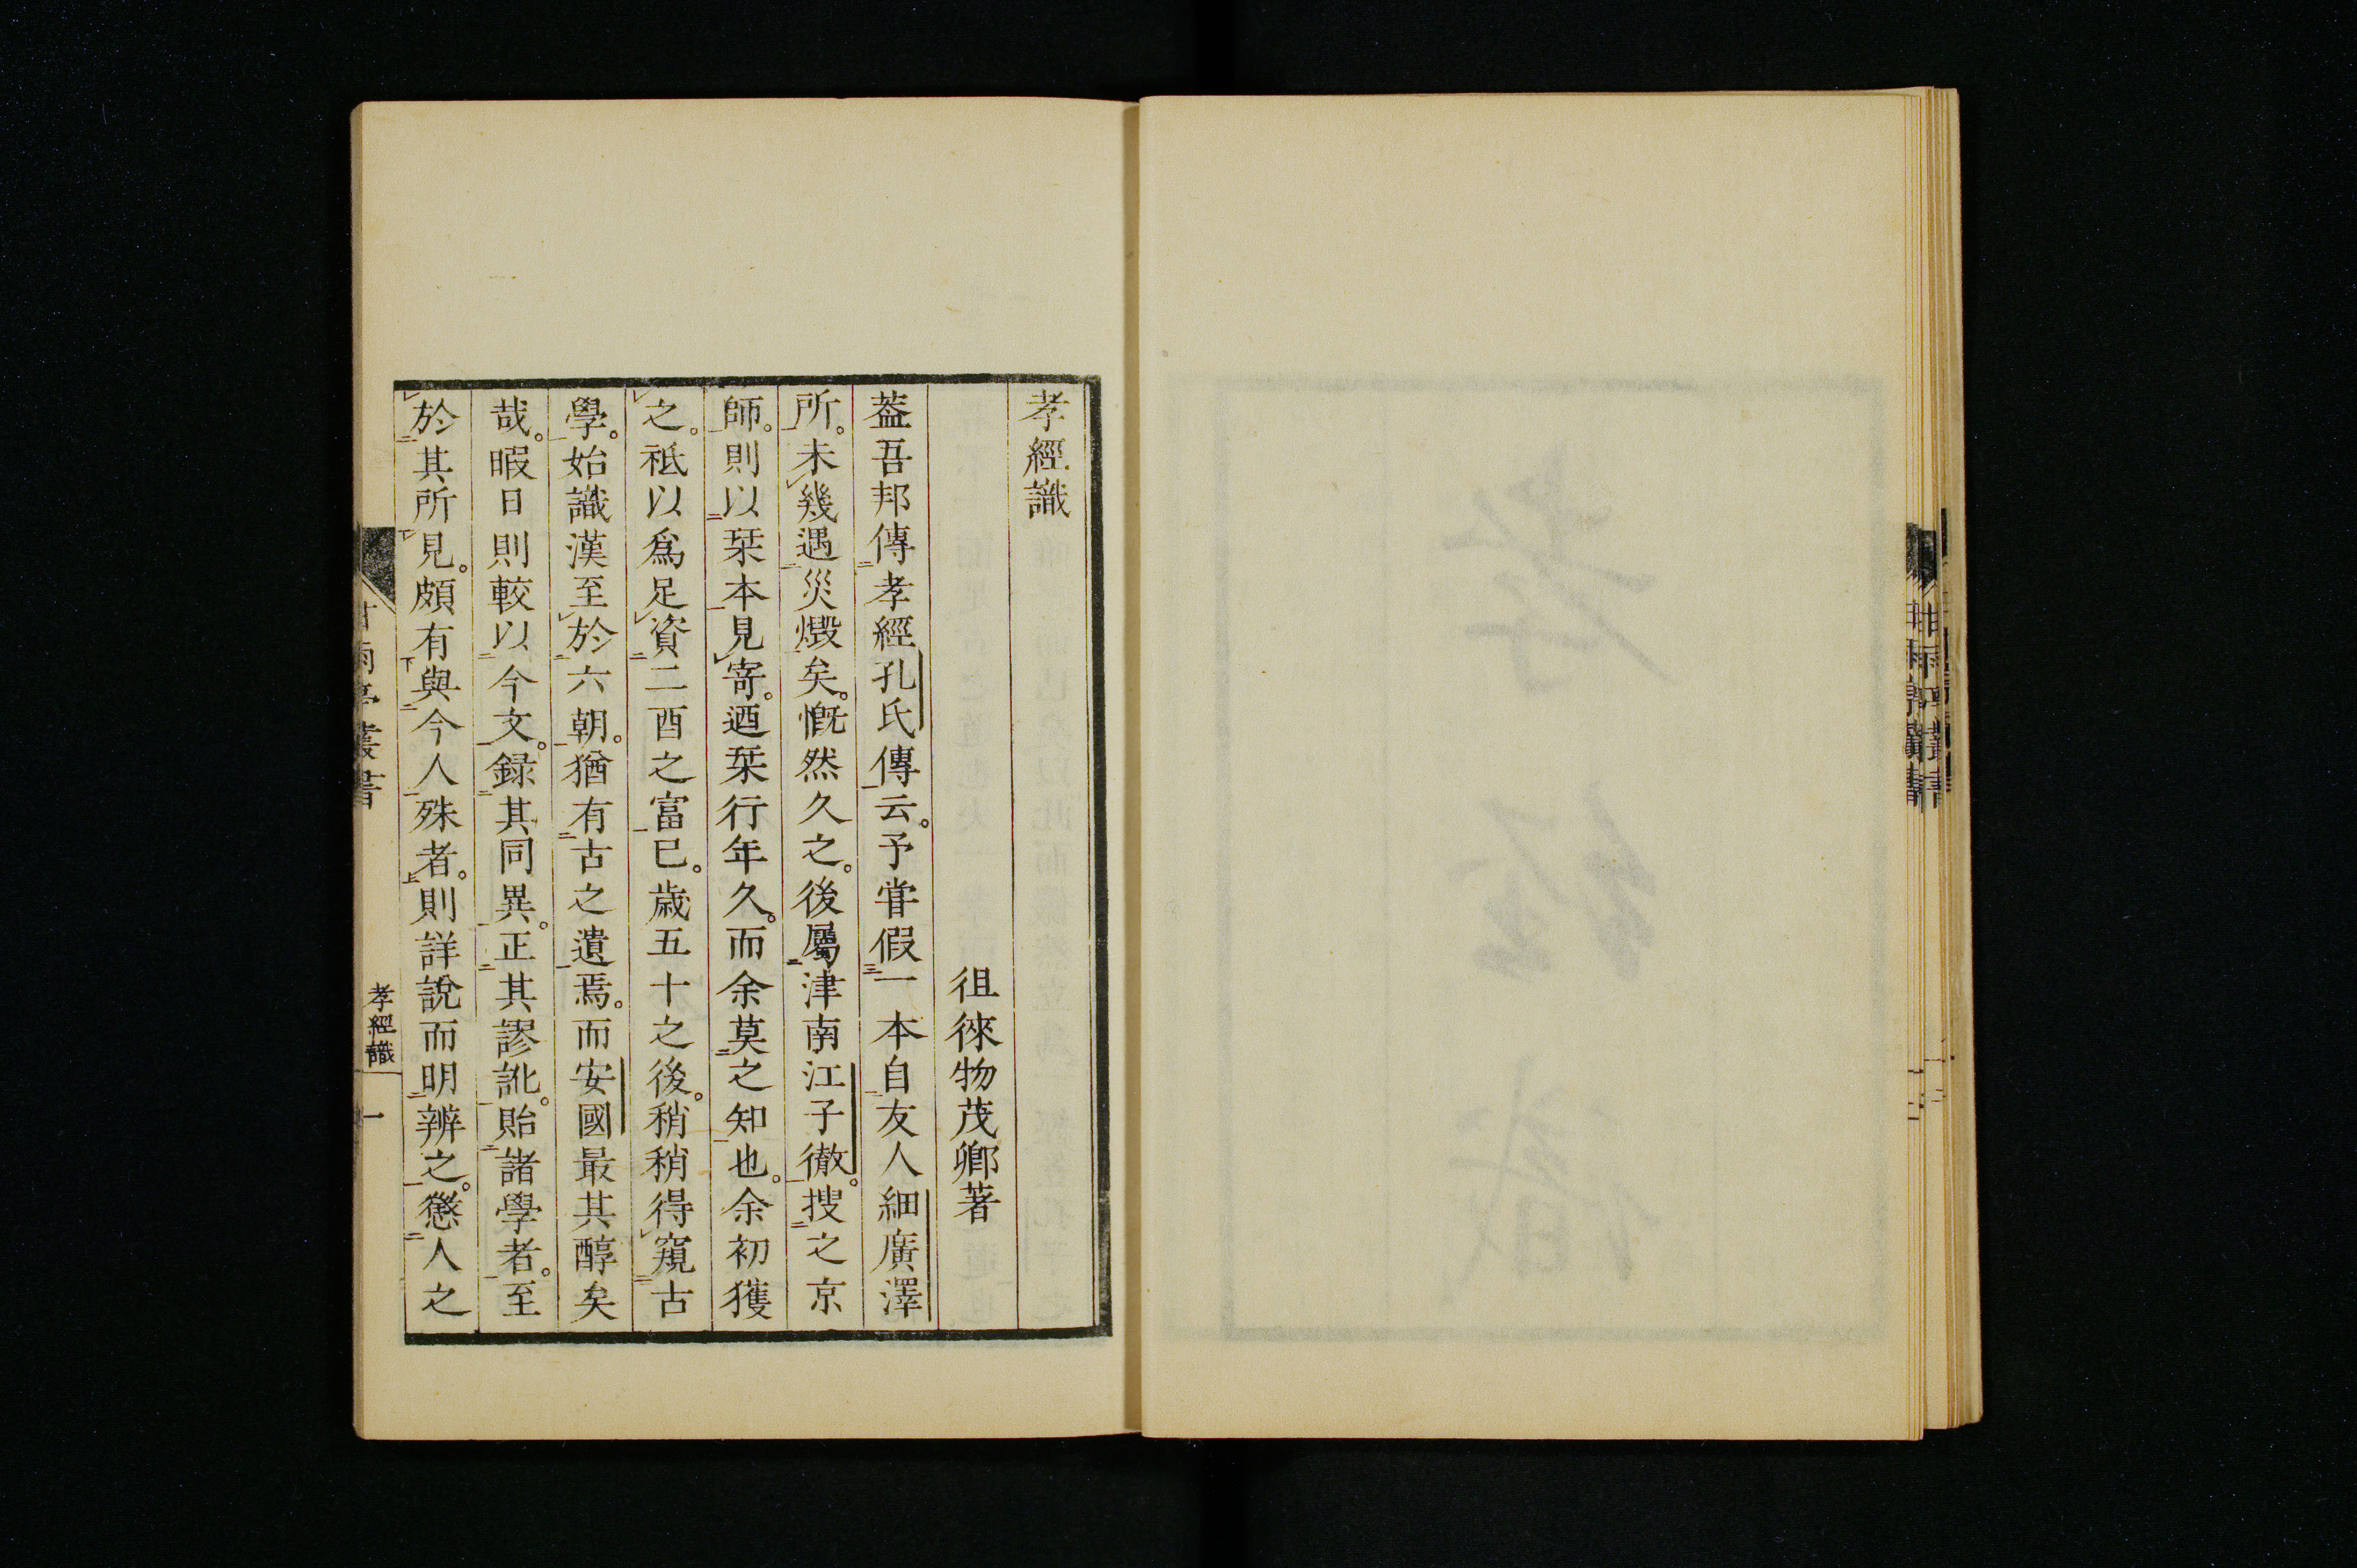 孝經識
徂徠物茂卿著
葢吾邦傳孝經孔氏傳云。予甞假一本自友人細廣澤
所。未幾遇災燬矣。慨然久之。後屬津南江子徹。搜之京
師。則以琹本見寄。迺琹行年久。而余莫之知也。余初獲
之。祗以爲足資二酉之富已。歲五十之後。稍稍得窺古
學。始識漢至於六朝。猶有古之遺焉。而安國最其醇矣
哉。暇日則較以今文。録其同異。正其謬訛。貽諸學者。至
於其所見。頗有與今人殊者。則詳說而明辨之。懲人之
甘雨亭叢書
孝經識
一